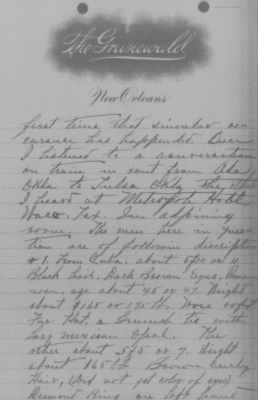 The Grunewald
New Orleans
first time, that similar oc-
curance has happended. Once
I listened to a conversation
on train in rout from Ada,
Okla to Tulsa Okla. The other
I heard at Metropole Hotel
Waco, Tex. In adjoining
room. The men here in ques-
tion are of following discription
# 1. From Cuba, about 5ft or 11
Black hair, Dark Brown Eyes, Roman
nose. age about 45 or 47. Weight
about 165 or 175 lb. Wore soft
Fur Hat, a Greenish tie with
large mexican Opal. The
other about 5ft 5 or 7. Weight
about 165 lb Brown curly
Hair, (Did not get color of eyes)
Diamond Ring on left hand